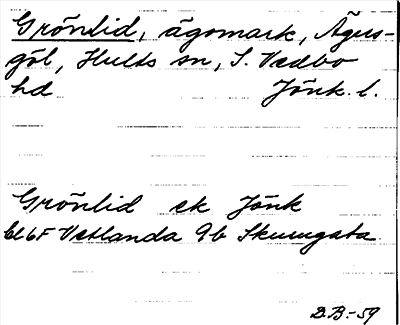 Grönlid, ägomark, Ägus-
göl, Hults sn, S. Vedbo
hd Jönk. l.
Grönlid ek Jönk
6F Vetlanda 9b Skurugata
D.B.-59